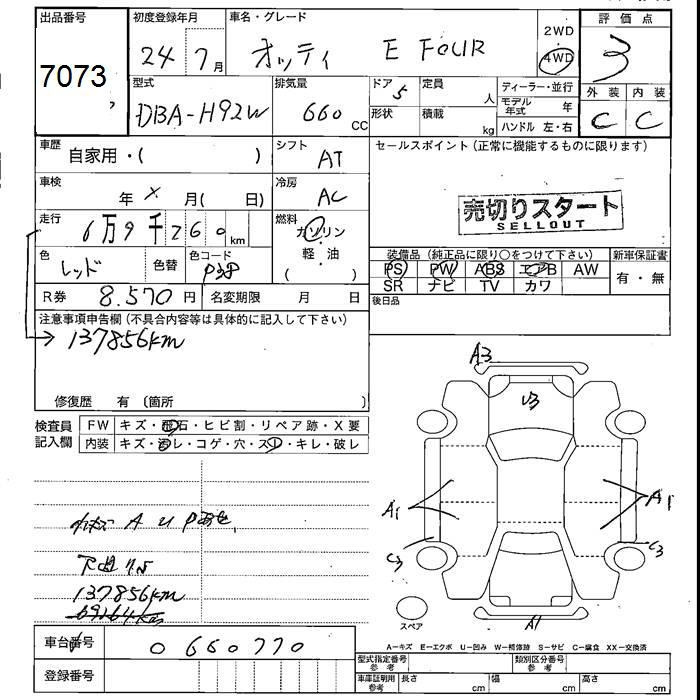 出品番号
7073
初度登録年月
24 7月
車名・グレード
オッティ E FOUR
2WD
4WD
評価点
3
外装 内装
C C
型式
DBA-H92W
排気量
660 CC
ドア 5
形状
定員 人
積載 kg
ディーラー・並行
モデル年式 年
ハンドル 左・右
車歴
自家用・( )
シフト
AT
セールスポイント(正常に機能するものに限ります)
車検
年 X 月( 日)
冷房
AC
売切りスタート
SELLOUT
走行
6万9千260km
燃料
ガソリン
軽・油
( )
色
レッド
色替
色コード
装備品(純正品に限り○をつけて下さい)
PS PW ABS エアB AW
SR ナビ TV カワ
新車保証書
有・無
R券 8.570円
名変期限 月 日
後日品
注意事項申告欄(不具合内容等は具体的に記入して下さい)
137856km
修復歴 有 〔箇所 〕
検査員記入欄
FW キズ・飛石・ヒビ割・リペア跡・X要
内装 キズ・汚レ・コゲ・穴・スレ・キレ・破レ
A3
U3
A1
A1
C3
C3
A1
スペア
A U
137856km
69264km
A−キズ E−エクボ U−凹み W−補修跡 S−サビ C−腐食 XX−交換済
車台番号
0660770
登録番号
型式指定番号 参考
類別区分番号 参考
車庫証明用 参考
長さ cm
幅 cm
高さ cm